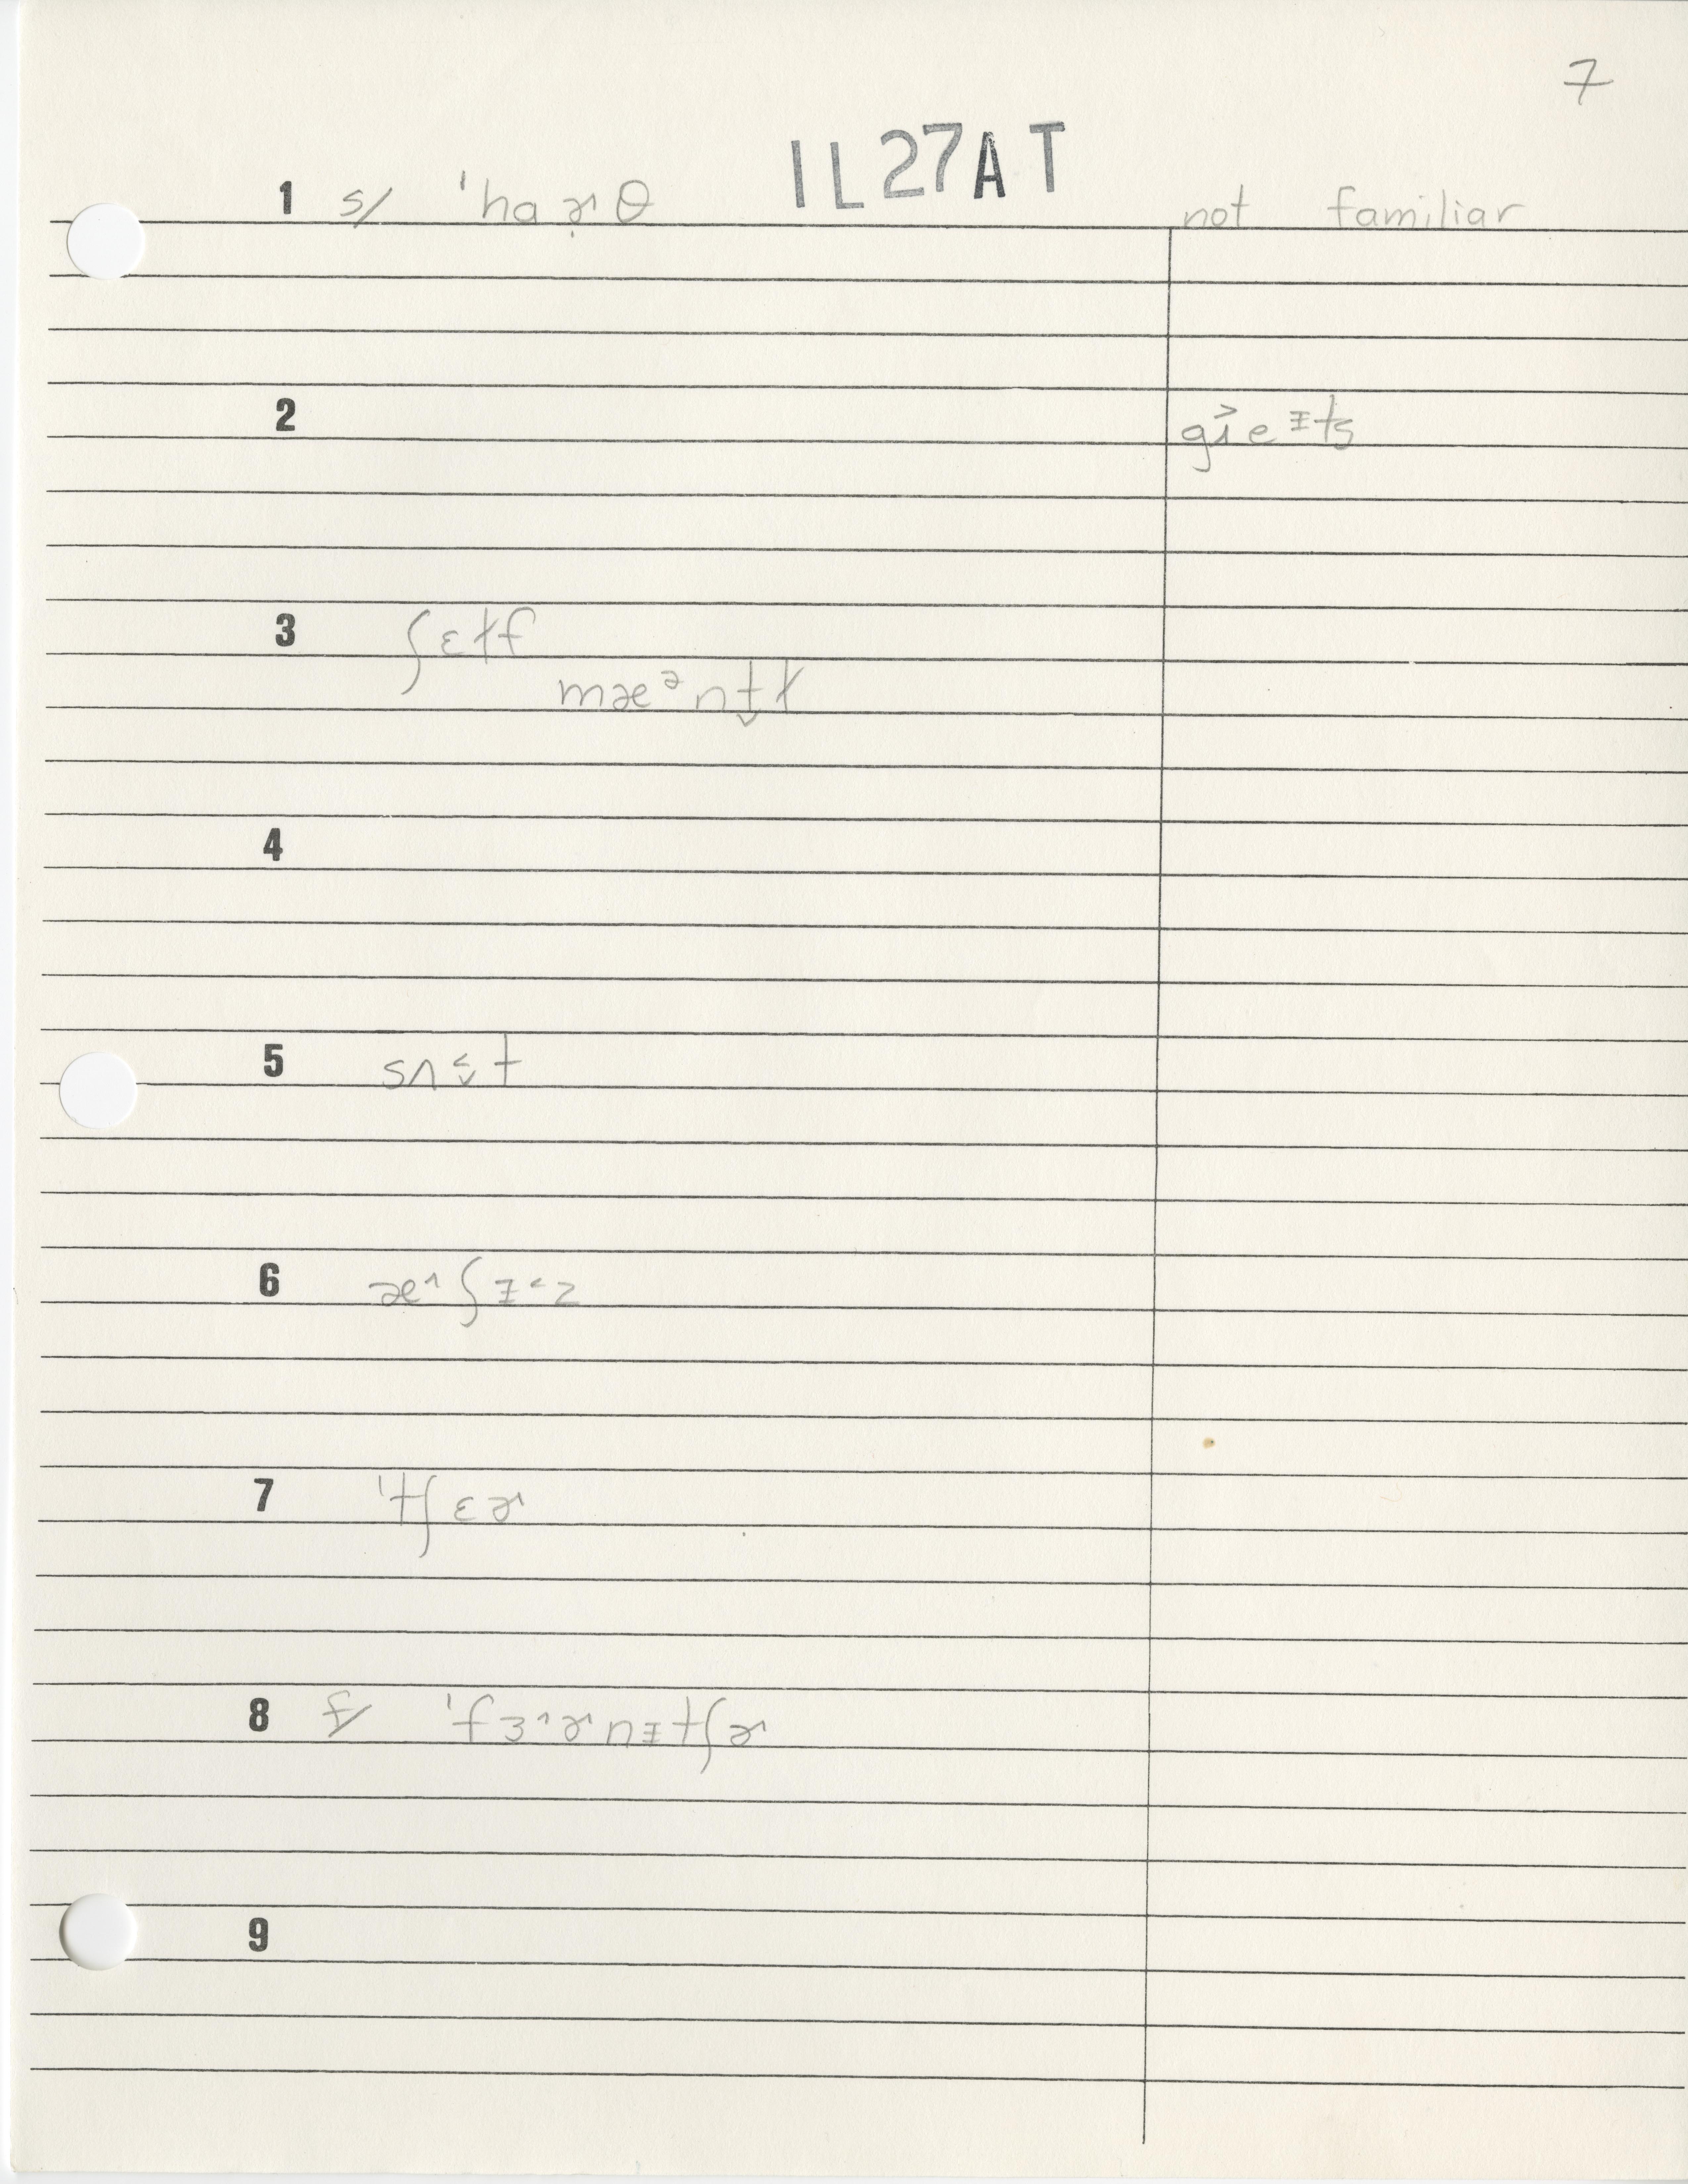 7
IL27AT
1 s/ ˈhɑɚ̣θ not familiar
2 gɪ˃eᵻt̬s
3 ʃɛɫf
mæᵊnt̬ɫ
4
5 sʌs̬t
6 æ˄ʃɪ˂z
7 ˈtʃɛɚ
8 f/ ˈfɜ˄ɚnɪtʃɚ
9